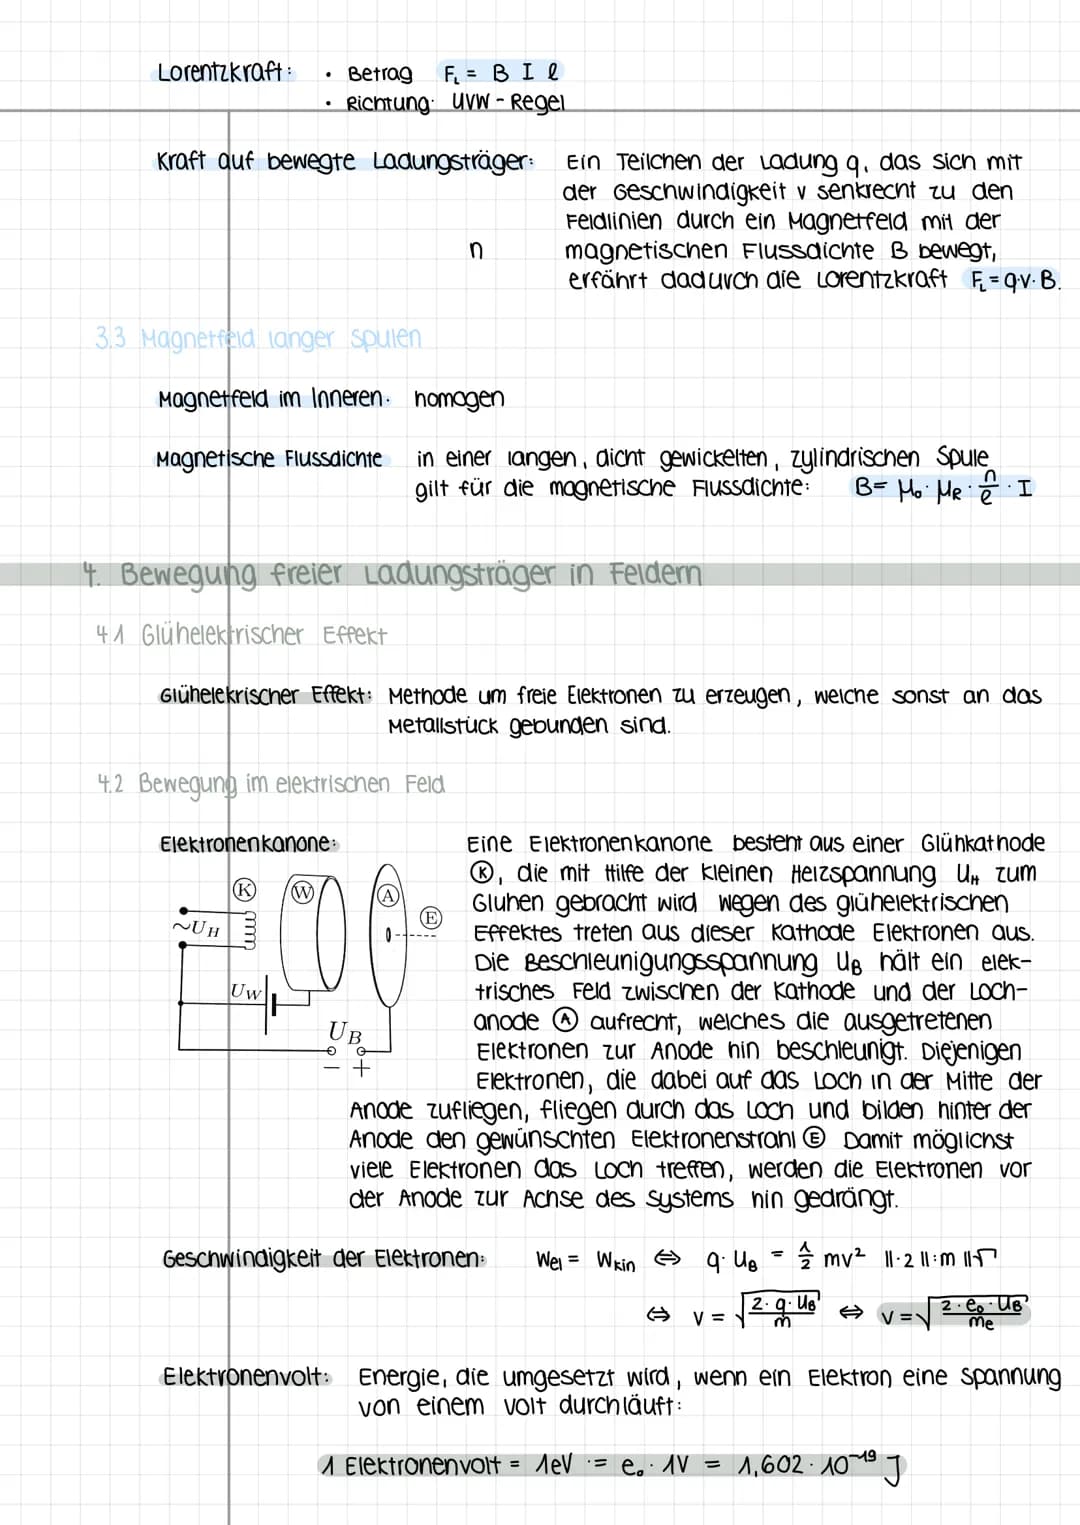 Lorentzkraft: • Betrag F_L = B I ℓ
• Richtung: UVW-Regel
Kraft auf bewegte Ladungsträger: Ein Teilchen der Ladung q, das sich mit
der Geschwindigkeit v senkrecht zu den
Feldlinien durch ein Magnetfeld mit der
n magnetischen Flussdichte B bewegt,
erfährt dadurch die Lorentzkraft F_L = q·v·B.
3.3 Magnetfeld langer Spulen
Magnetfeld im Inneren: homogen
Magnetische Flussdichte in einer langen, dicht gewickelten, zylindrischen Spule
gilt für die magnetische Flussdichte: B = μ₀ · μ_R · n/ℓ · I
4. Bewegung freier Ladungsträger in Feldern
4.1 Glühelektrischer Effekt
Glühelekrischer Effekt: Methode um freie Elektronen zu erzeugen, welche sonst an das
Metallstück gebunden sind.
4.2 Bewegung im elektrischen Feld
Elektronenkanone:
K W A E
~U_H
U_W
U_B
− +
Eine Elektronenkanone besteht aus einer Glühkathode
Ⓚ, die mit Hilfe der kleinen Heizspannung U_H zum
Glühen gebracht wird wegen des glühelektrischen
Effektes treten aus dieser Kathode Elektronen aus.
Die Beschleunigungsspannung U_B hält ein elek-
trisches Feld zwischen der Kathode und der Loch-
anode Ⓐ aufrecht, welches die ausgetretenen
Elektronen zur Anode hin beschleunigt. Diejenigen
Elektronen, die dabei auf das Loch in der Mitte der
Anode zufliegen, fliegen durch das Loch und bilden hinter der
Anode den gewünschten Elektronenstrahl Ⓔ Damit möglichst
viele Elektronen das Loch treffen, werden die Elektronen vor
der Anode zur Achse des Systems hin gedrängt.
Geschwindigkeit der Elektronen: W_el = W_kin ⇔ q·U_B = 1/2 mv² ||·2 ||:m ||√
⇔ v = √(2·q·U_B / m) ⇔ v = √(2·e₀·U_B / m_e)
Elektronenvolt: Energie, die umgesetzt wird, wenn ein Elektron eine Spannung
von einem Volt durchläuft:
1 Elektronenvolt = 1eV := e₀·1V = 1,602·10⁻¹⁹ J